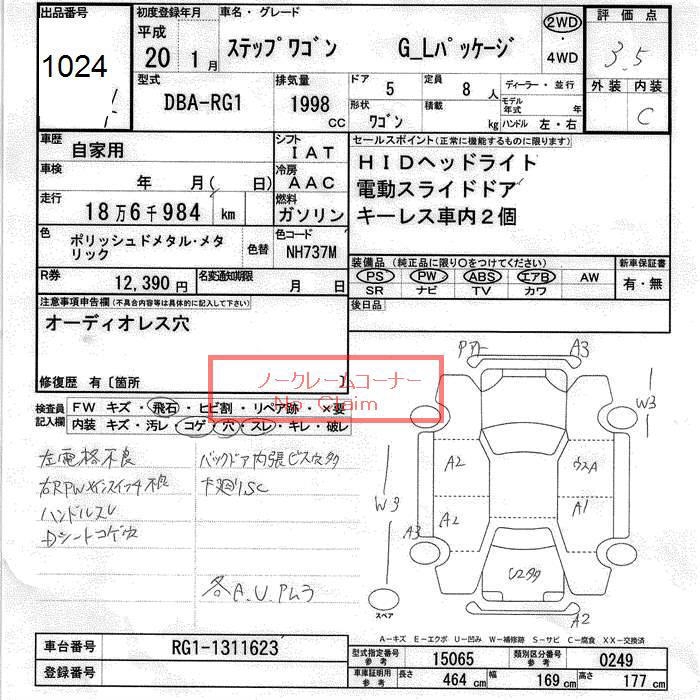 出品番号
1024
初度登録年月
平成
20 1月
車名・グレード
ステップワゴン G_Lパッケージ
2WD
・
4WD
評価点
3.5
外装 内装
C
型式
DBA-RG1
排気量
1998
CC
ドア
5
定員
8 人
形状
ワゴン
積載
kg
ディーラー・並行
モデル
年式 年
ハンドル 左・右
車歴
自家用
シフト
IAT
車検
年 月( 日)
冷房
AAC
走行
18万6千984 km
燃料
ガソリン
色
ポリッシュドメタル・メタ
リック
色替
色コード
NH737M
R券
12,390円
名変通知期限
月 日
セールスポイント(正常に機能するものに限ります)
HIDヘッドライト
電動スライドドア
キーレス車内2個
装備品(純正品に限り○をつけてください)
PS PW ABS エアB AW
SR ナビ TV カワ
新車保証書
有・無
後日品
注意事項申告欄(不具合内容等は具体的に記入して下さい)
オーディオレス穴
修復歴 有〔箇所 〕
ノークレームコーナー
No Claim
検査員
記入欄
FW キズ・飛石・ヒビ割・リペア跡・×要
内装 キズ・汚レ・コゲ・穴・スレ・キレ・破レ
左電格不良
右RPWメインスイッチ不良
ハンドルスレ
Dシートコゲ穴
バックドア内張ビス穴タタ
下廻りSC
各A.U.Pムラ
A3
W3
A2
A1
A2
A3
W3
U2タタ
A2
スペア
A-キズ E-エクボ U-凹み W-補修跡 S-サビ C-腐食 XX-交換済
車台番号
RG1-1311623
登録番号
型式指定番号
参考
15065
類別区分番号
参考
0249
車庫証明用
参考
長さ
464 cm
幅
169 cm
高さ
177 cm